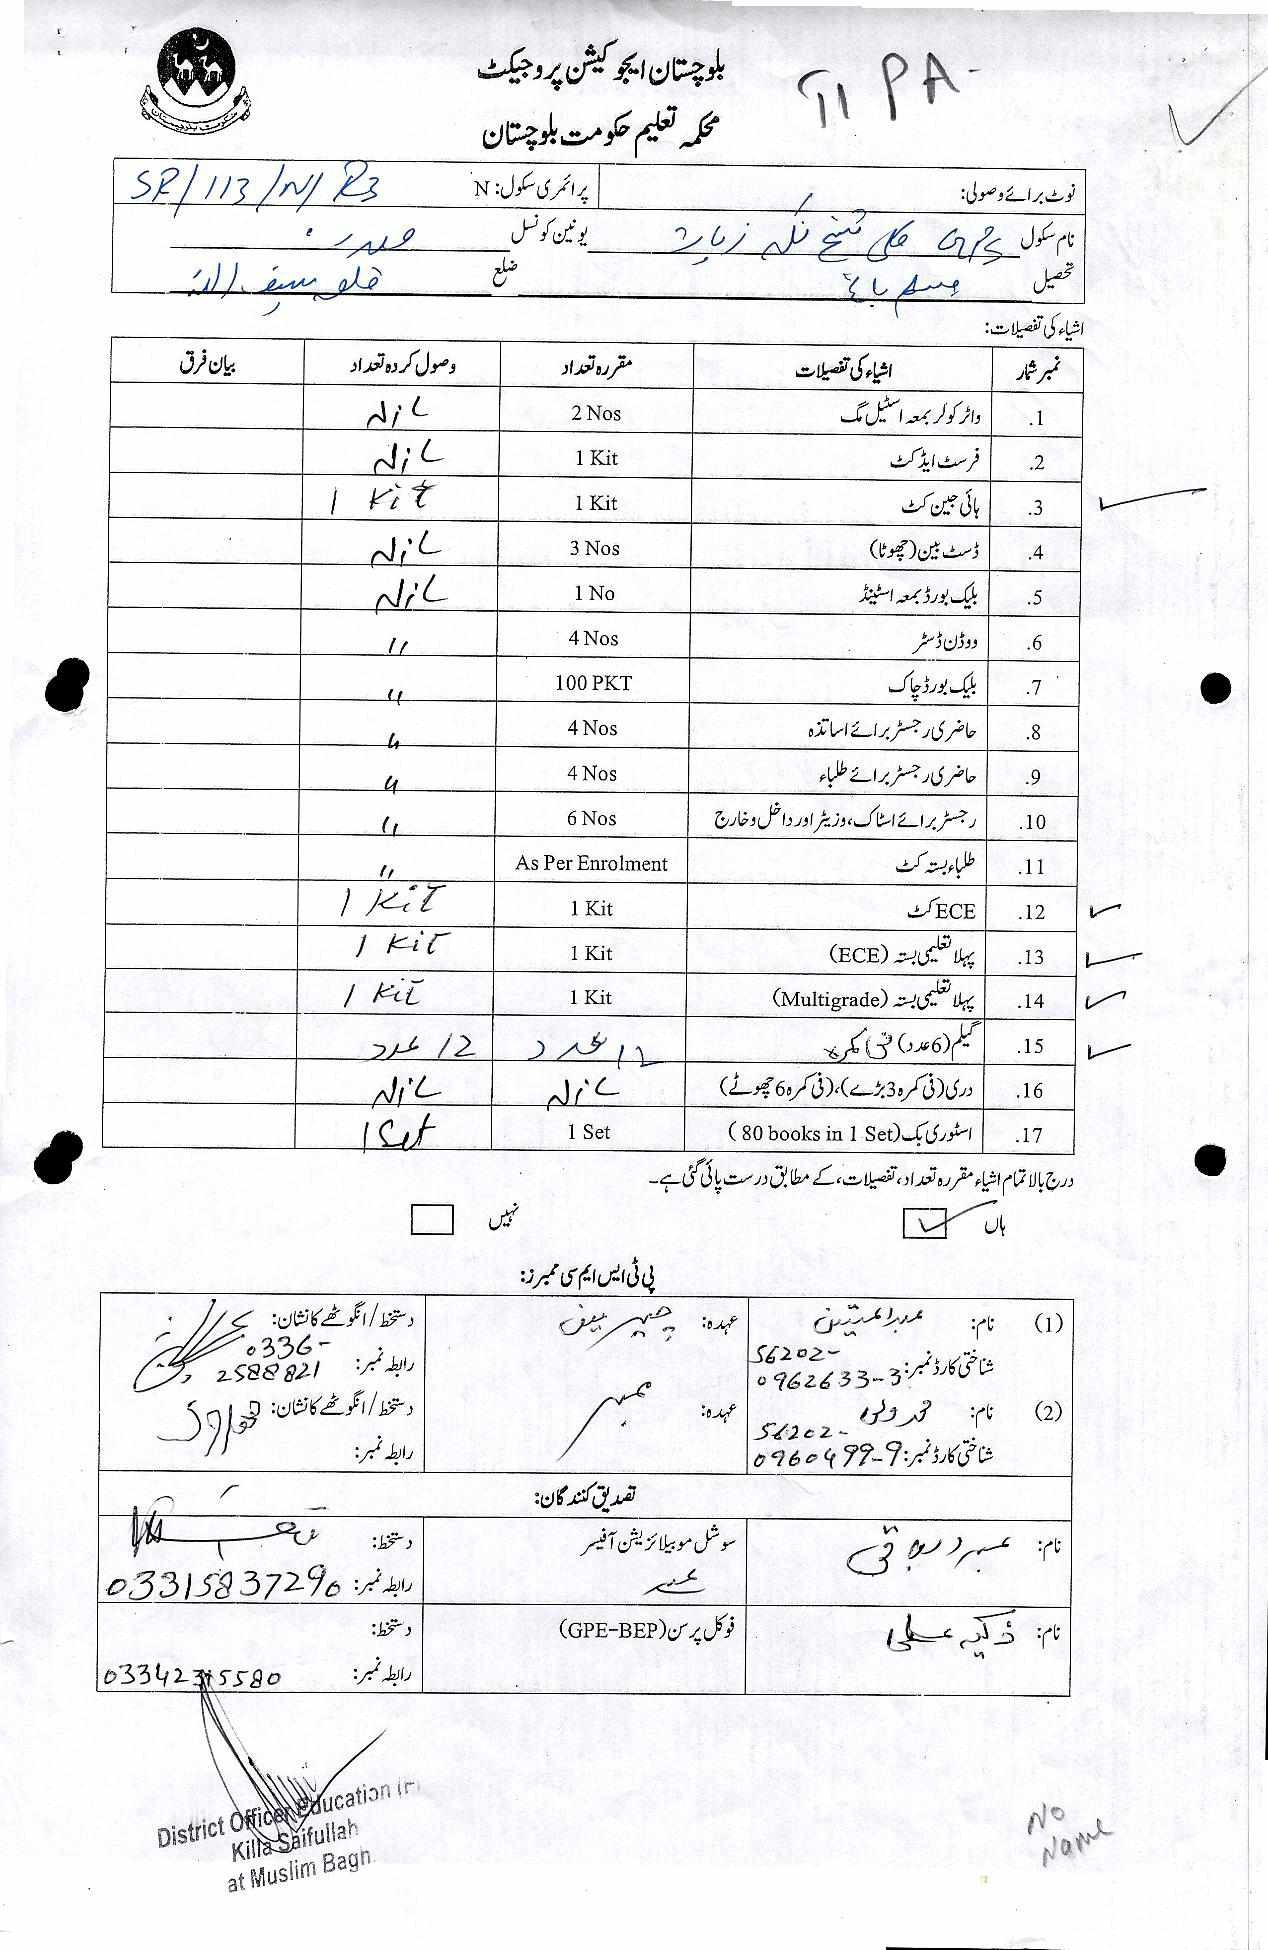 بلوچستان ایجوکیشن پروجیکٹ
محکمہ تعلیم حکومت بلوچستان
PA-
نوٹ برائے وصولی: پرائمری سکول: N SR/113/N/R3
نام سکول GPS کلی زیارت یونین کونسل
تحصیل مسلم باغ ضلع قلعہ سیف اللہ
اشیاء کی تفصیلات:
نمبر شمار اشیاء کی تفصیلات مقررہ تعداد وصول کردہ تعداد بیان فرق
1. واٹر کولر بمعہ اسٹیل مگ 2 Nos Nil
2. فرسٹ ایڈ کٹ 1 Kit Nil
3. ہائی جین کٹ 1 Kit 1 Kit
4. ڈسٹ بین (چھوٹا) 3 Nos Nil
5. بلیک بورڈ بمعہ اسٹینڈ 1 No Nil
6. ووڈن ڈسٹر 4 Nos "
7. بلیک بورڈ چاک 100 PKT "
8. حاضری رجسٹر برائے اساتذہ 4 Nos "
9. حاضری رجسٹر برائے طلباء 4 Nos "
10. رجسٹر برائے اسٹاک، وزیٹر اور داخل و خارج 6 Nos "
11. طلباء بستہ کٹ As Per Enrolment "
12. ECE کٹ 1 Kit 1 Kit
13. پہلا تعلیمی بستہ (ECE) 1 Kit 1 Kit
14. پہلا تعلیمی بستہ (Multigrade) 1 Kit 1 Kit
15. گیلم (6 عدد) فی کمرہ 12 عدد 12 عدد
16. دری (فی کمرہ 3 بڑے)، (فی کمرہ 6 چھوٹے) Nil Nil
17. اسٹوری بک (80 books in 1 Set) 1 Set 1 Set
درج بالا تمام اشیاء مقررہ تعداد، تفصیلات، کے مطابق درست پائی گئی ہے۔
ہاں نہیں
پی ٹی ایس ایم سی ممبرز:
(1) نام: عبدالمتین عہدہ: چیئرمین دستخط/انگوٹھے کا نشان:
شناختی کارڈ نمبر: 56202-0962633-3 رابطہ نمبر: 0336-2588821
(2) نام: عہدہ: ممبر دستخط/انگوٹھے کا نشان:
شناختی کارڈ نمبر: 56202-0960499-9 رابطہ نمبر:
تصدیق کنندگان:
نام: سوشل موبیلائزیشن آفیسر دستخط:
رابطہ نمبر: 03315837290
نام: علی فوکل پرسن (GPE-BEP) دستخط:
رابطہ نمبر: 03342315580
District Officer Education (F)
Killa Saifullah
at Muslim Bagh
No
Name